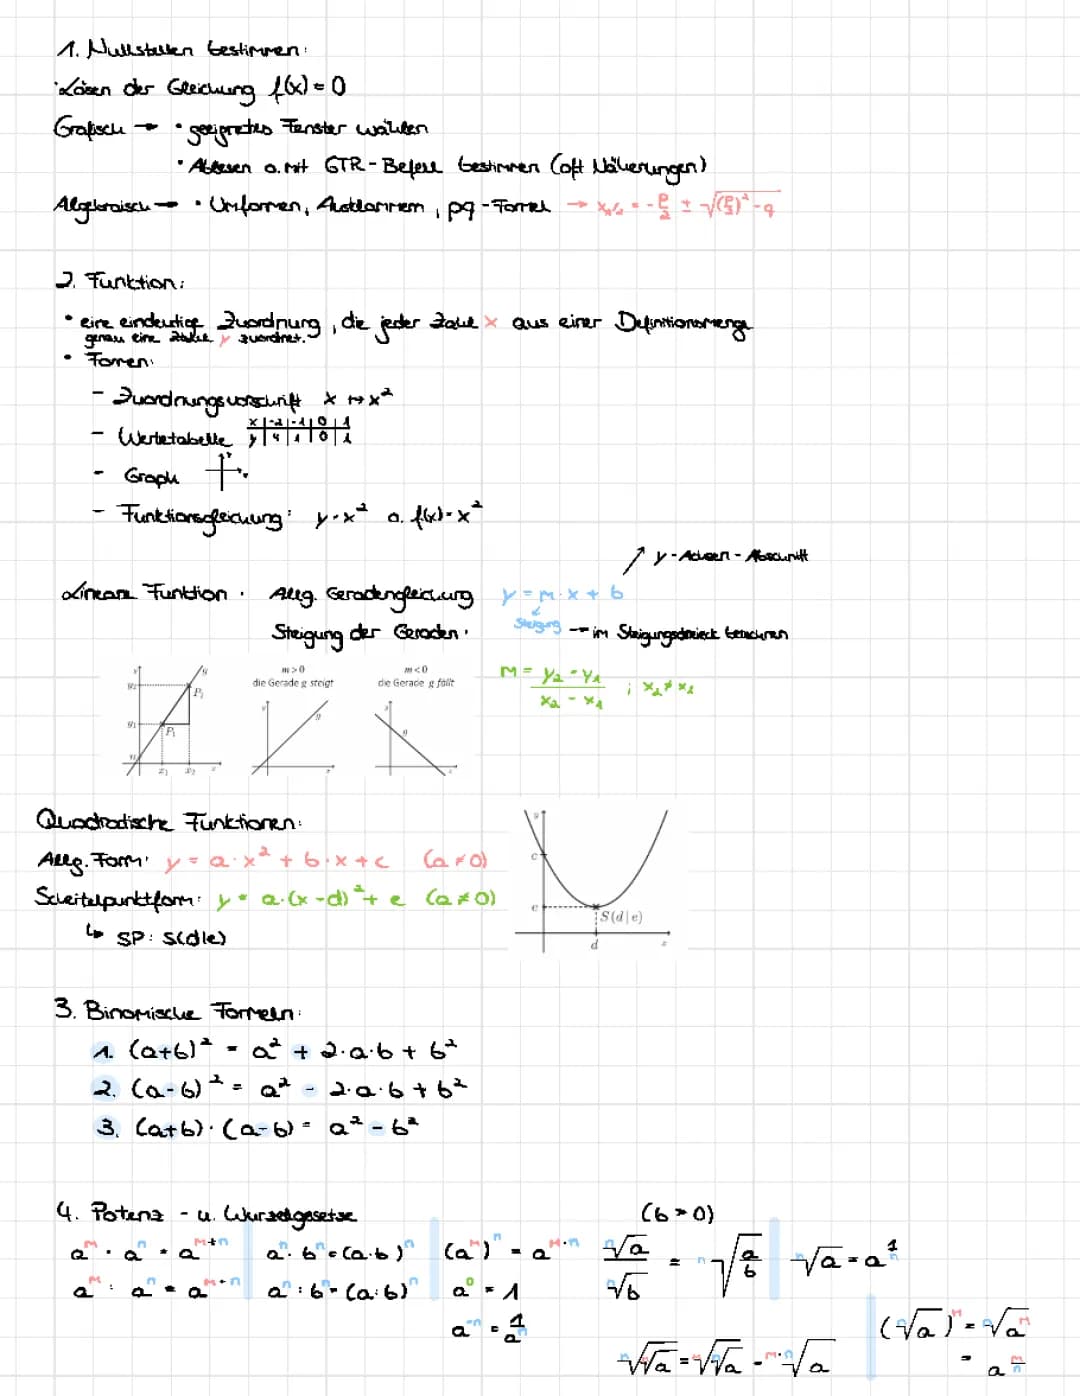 1. Nullstellen bestimmen:
·Lösen der Gleichung f(x) = 0
Grafisch → • geeignetes Fenster wählen
• Ablesen o. mit GTR-Befehl bestimmen (oft Näherungen)
Algebraisch → • Umformen, Ausklammern, pq-Formel → x₁/₂ = -p/2 ± √((p/2)² - q
2. Funktion:
• eine eindeutige Zuordnung, die jeder Zahl x aus einer Definitionsmenge
genau eine Zahl y zuordnet.
• Formen:
- Zuordnungsvorschrift x ↦ x²
- Wertetabelle x | -2 | -1 | 0 | 1
y | 4 | 1 | 0 | 1
- Graph
- Funktionsgleichung: y = x² o. f(x) = x²
↗ y-Achsen-Abschnitt
Lineare Funktion: Allg. Geradengleichung y = m · x + b
Steigung der Geraden: Steigung → im Steigungsdreieck berechnen
m > 0 m < 0
die Gerade g steigt die Gerade g fällt
m = (y₂ - y₁)/(x₂ - x₁) ; x₂ ≠ x₁
y g y₂ P₂ y₁ P₁ x₁ x₂ x
y g x
y g x
Quadratische Funktionen:
Allg. Form: y = a · x² + b · x + c (a ≠ 0)
Scheitelpunktform: y = a · (x - d)² + e (a ≠ 0)
↳ SP: S(d|e)
y c e S(d|e) d x
3. Binomische Formeln:
1. (a+b)² = a² + 2·a·b + b²
2. (a-b)² = a² - 2·a·b + b²
3. (a+b) · (a-b) = a² - b²
4. Potenz - u. Wurzelgesetze (b > 0)
aᵐ · aⁿ = aᵐ⁺ⁿ | aⁿ · bⁿ = (a·b)ⁿ | (aᵐ)ⁿ = aᵐ·ⁿ ⁿ√a / ⁿ√b = ⁿ√(a/b) | √a = a^1
aᵐ : aⁿ = aᵐ⁻ⁿ | aⁿ : bⁿ = (a:b)ⁿ | a⁰ = 1
a⁻ⁿ = 1/aⁿ (ⁿ√a)ᵐ = ⁿ√aᵐ
= a^(m/n)
ⁿ√ᵐ√a = ᵐ√ⁿ√a = ᵐ·ⁿ√a